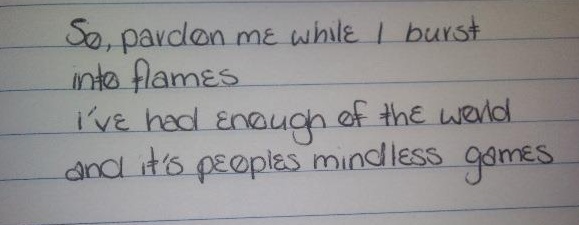 So, pardon me while I burst
into flames
i've had enough of the world
and it's peoples mindless games